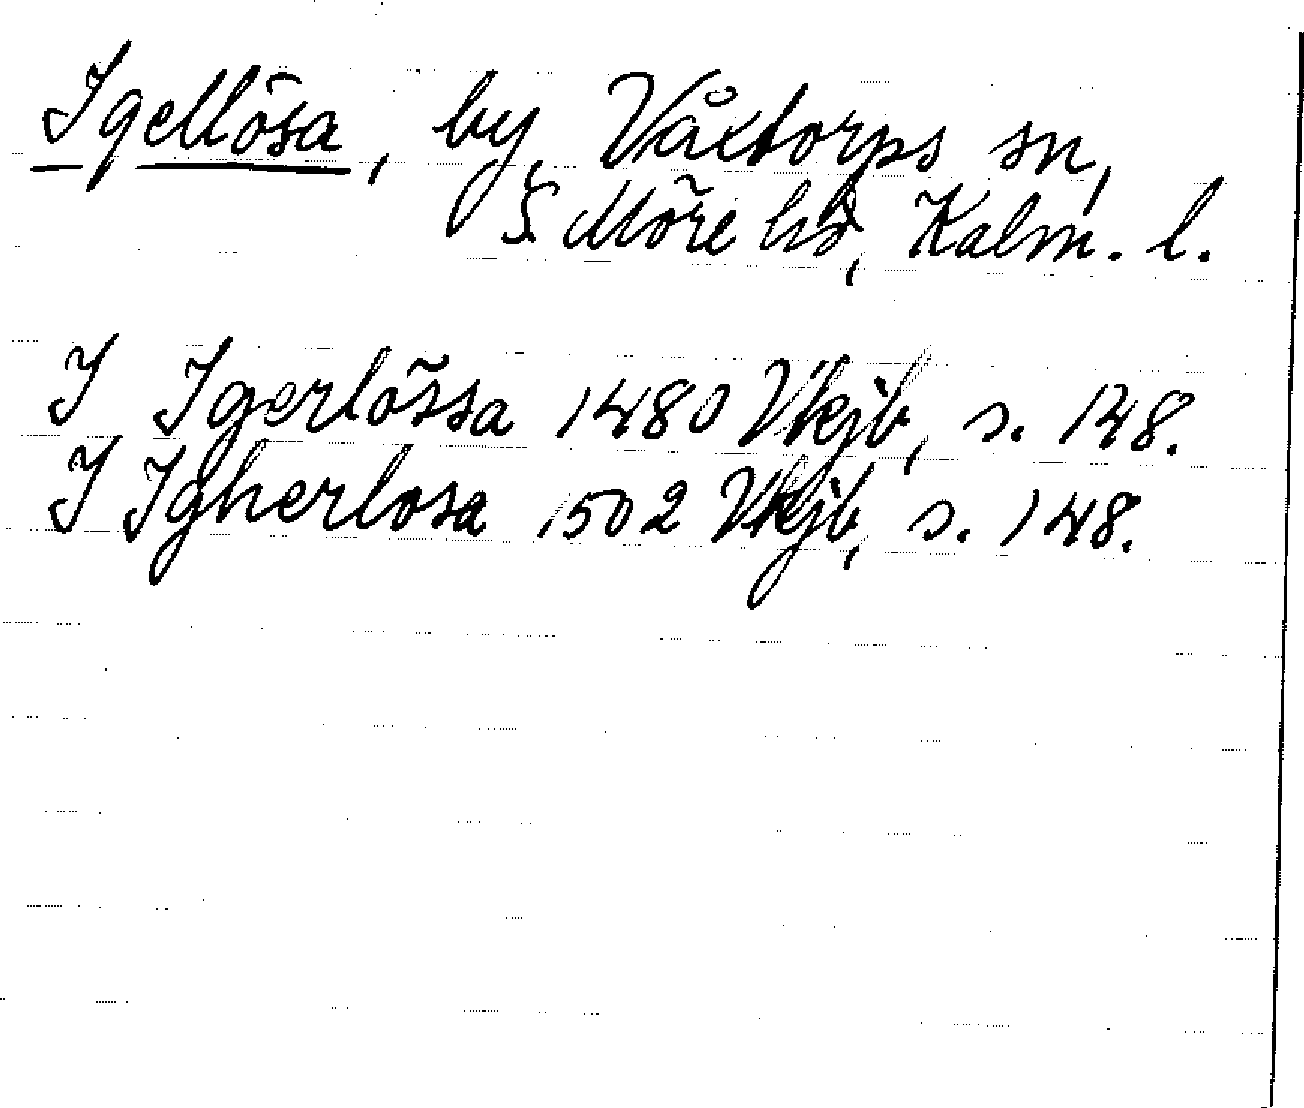 Igellösa, by, Våxtorps sn,
S Möre hd, Kalm. l.
I Igerlössa 1480 Vkjb, s. 148.
I Igherlosa 1502 Vkjb, s. 148.